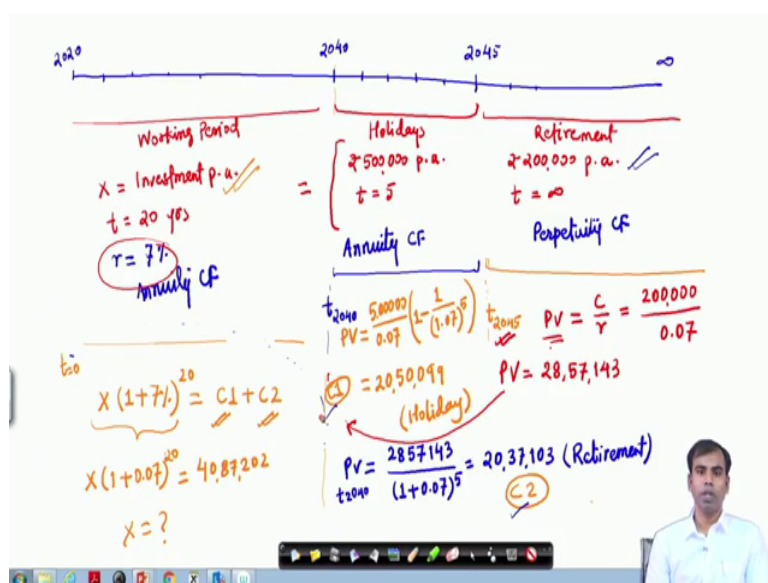 2020 2040 2045 ∞
Working Period
X = Investment p.a.
t = 20 yrs
r = 7%
Annuity CF
=
Holidays
₹500,000 p.a.
t = 5
Annuity CF
Retirement
₹200,000 p.a.
t = ∞
Perpetuity CF
t2040
PV = 5,00000/0.07 (1 - 1/(1.07)^5)
C1 = 20,50,099
(Holiday)
t2045 PV = C/r = 200,000/0.07
PV = 28,57,143
PV t2040 = 2857143/(1+0.07)^5 = 20,37,103 (Retirement)
C2
t=0
X(1+7%)^20 = C1+C2
X(1+0.07)^20 = 40,87,202
X = ?